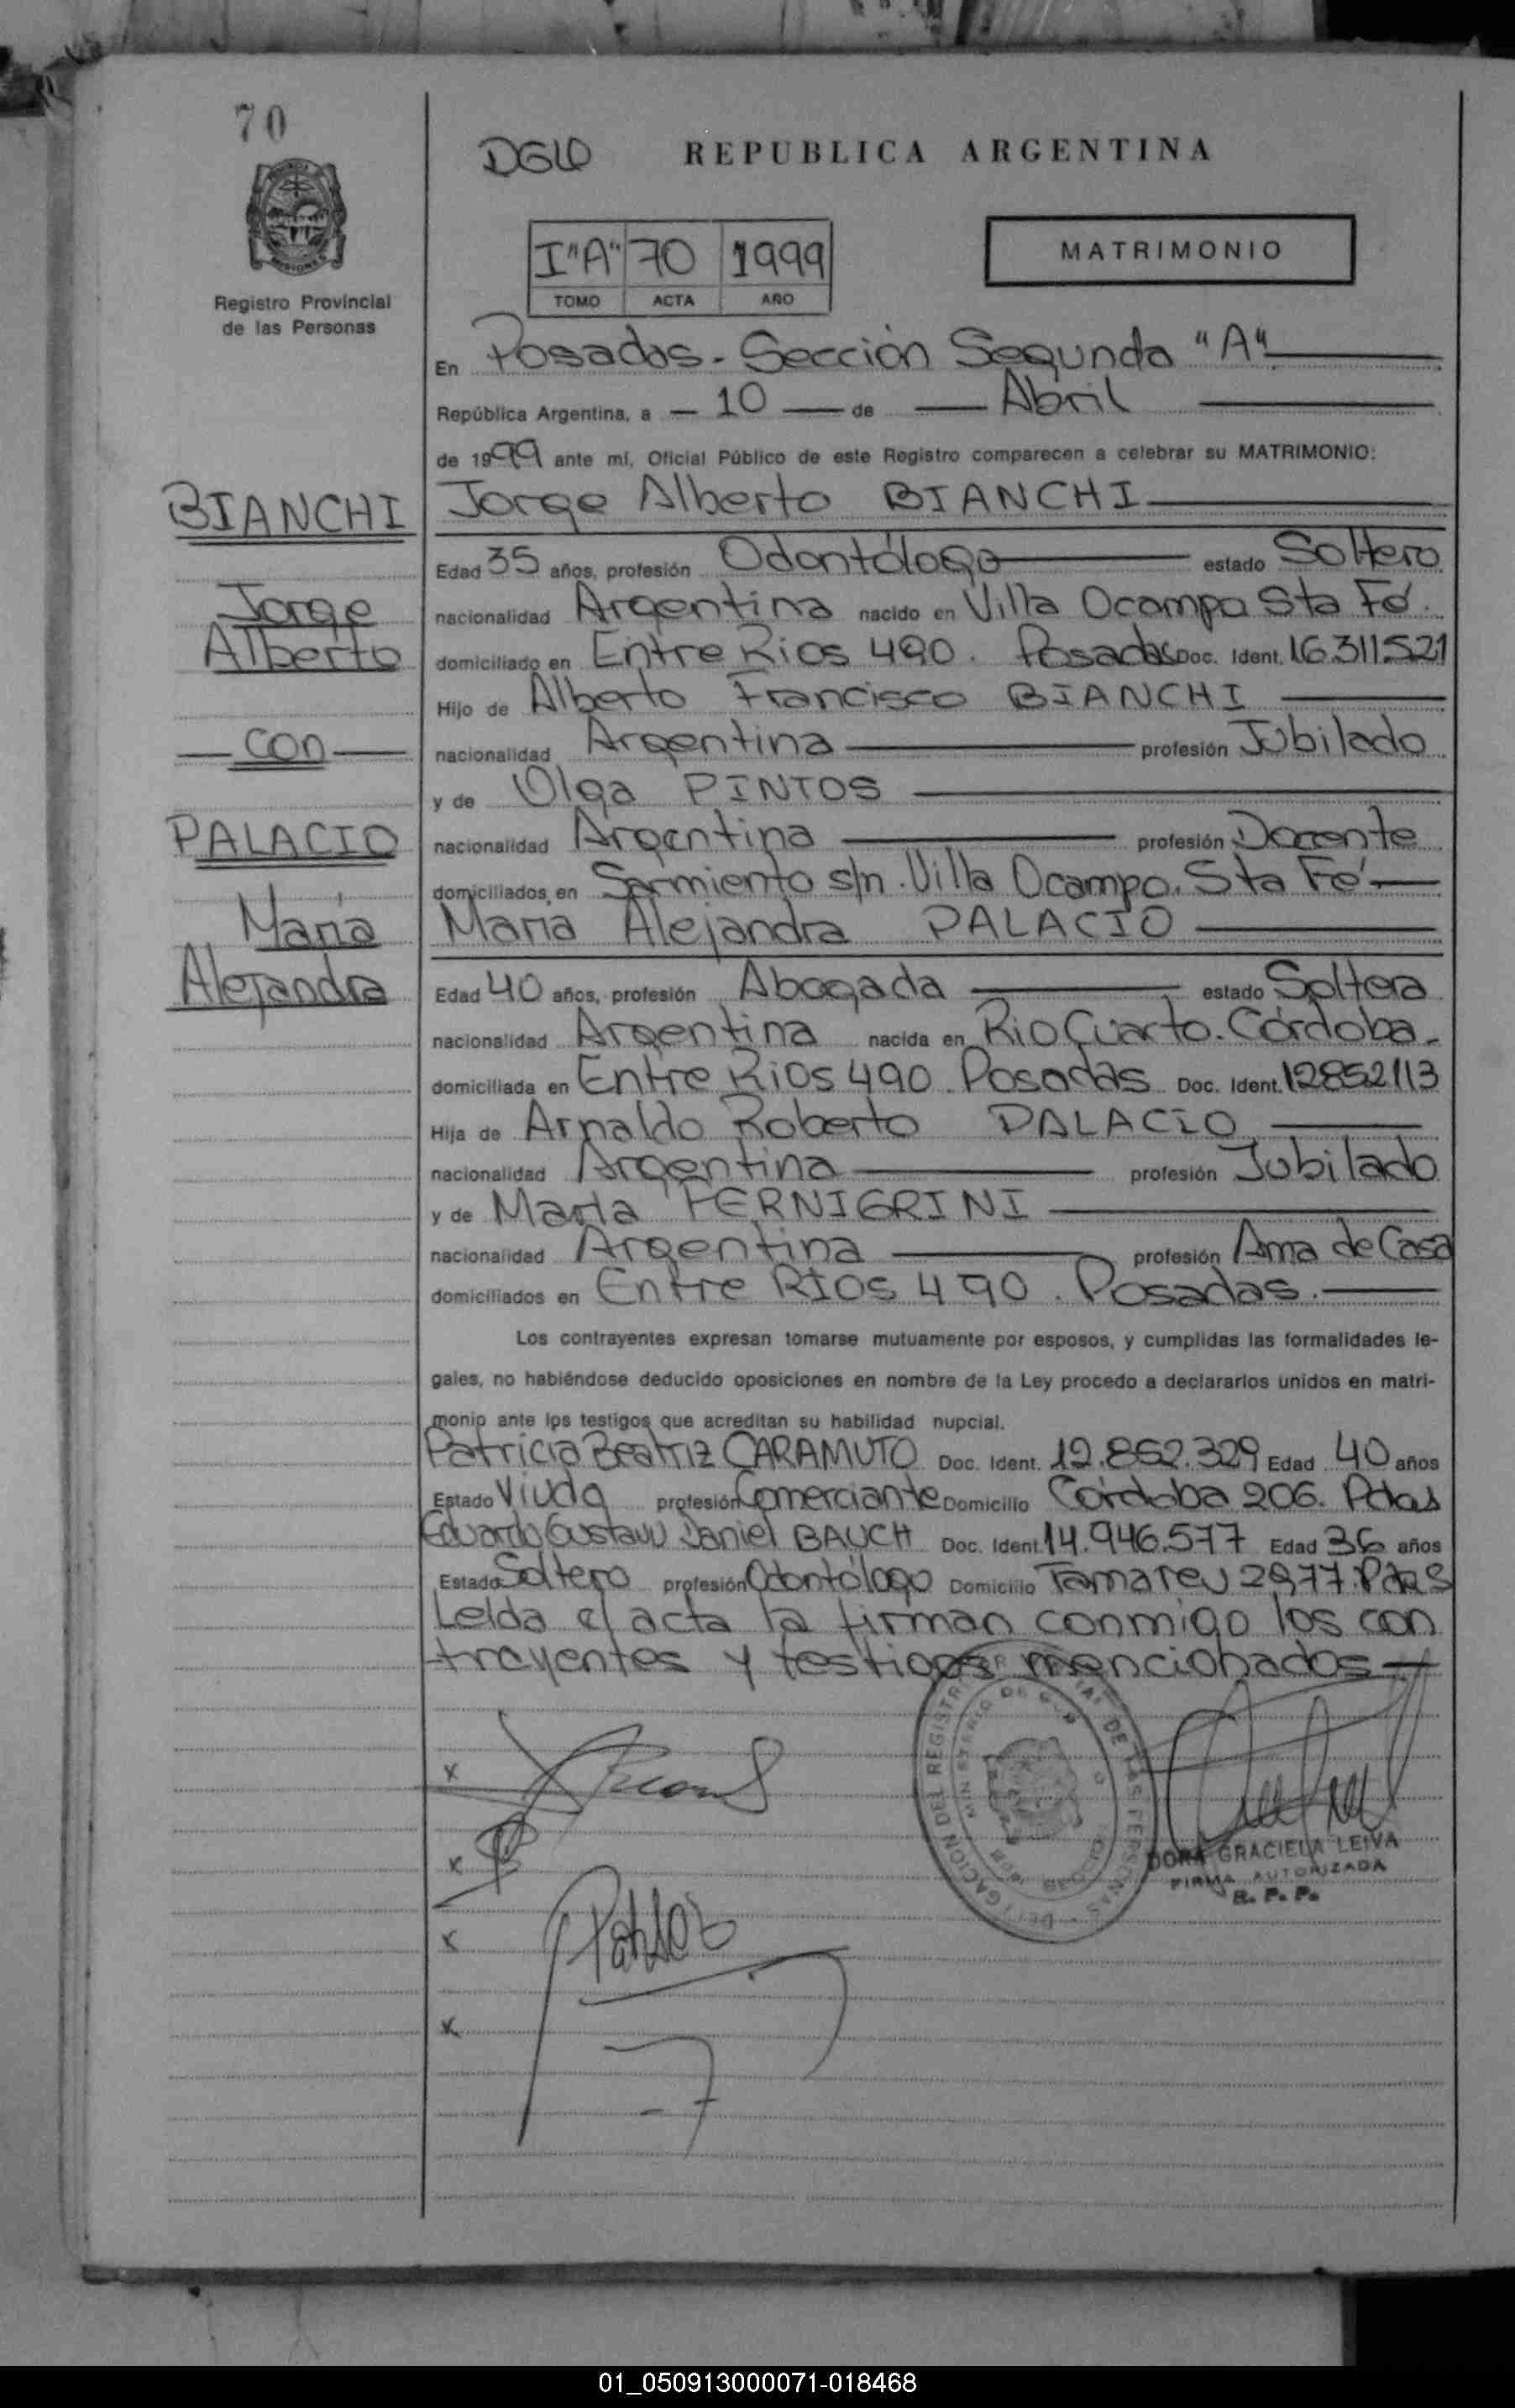 70
DGLD
REPUBLICA ARGENTINA
I"A" 70 1999
TOMO ACTA AÑO
MATRIMONIO
Registro Provincial
de las Personas
En Posadas - Sección Segunda "A"
República Argentina, a - 10 - de - Abril
de 1999 ante mí, Oficial Público de este Registro comparecen a celebrar su MATRIMONIO:
BIANCHI
Jorge
Alberto
con
PALACIO
María
Alejandra
Jorge Alberto BIANCHI
Edad 35 años, profesión Odontólogo estado Soltero
nacionalidad Argentina nacido en Villa Ocampo Sta Fé.
domiciliado en Entre Rios 490. Posadas Doc. Ident. 16.311.521
Hijo de Alberto Francisco BIANCHI
nacionalidad Argentina profesión Jubilado
y de Olga PINTOS
nacionalidad Argentina profesión Docente
domiciliados en Sarmiento s/n. Villa Ocampo. Sta Fé
María Alejandra PALACIO
Edad 40 años, profesión Abogada estado Soltera
nacionalidad Argentina nacida en Rio Cuarto. Córdoba.
domiciliada en Entre Rios 490. Posadas Doc. Ident. 12852113
Hija de Arnaldo Roberto PALACIO
nacionalidad Argentina profesión Jubilado
y de María FERNIGRINI
nacionalidad Argentina profesión Ama de Casa
domiciliados en Entre Rios 490. Posadas.
Los contrayentes expresan tomarse mutuamente por esposos, y cumplidas las formalidades le-
gales, no habiéndose deducido oposiciones en nombre de la Ley procedo a declararlos unidos en matri-
monio ante los testigos que acreditan su habilidad nupcial.
Patricia Beatriz CARAMUTO Doc. Ident. 12.852.329 Edad 40 años
Estado Viuda profesión Comerciante Domicilio Córdoba 206. Pdas
Eduardo Gustavo Daniel BAUCH Doc. Ident. 14.946.577 Edad 36 años
Estado Soltero profesión Odontólogo Domicilio Tamareu 2977. Pdas
Leida el acta la firman conmigo los con
trayentes y testigos mencionados
DORA GRACIELA LEIVA
FIRMA AUTORIZADA
R. P. P.
01_050913000071-018468